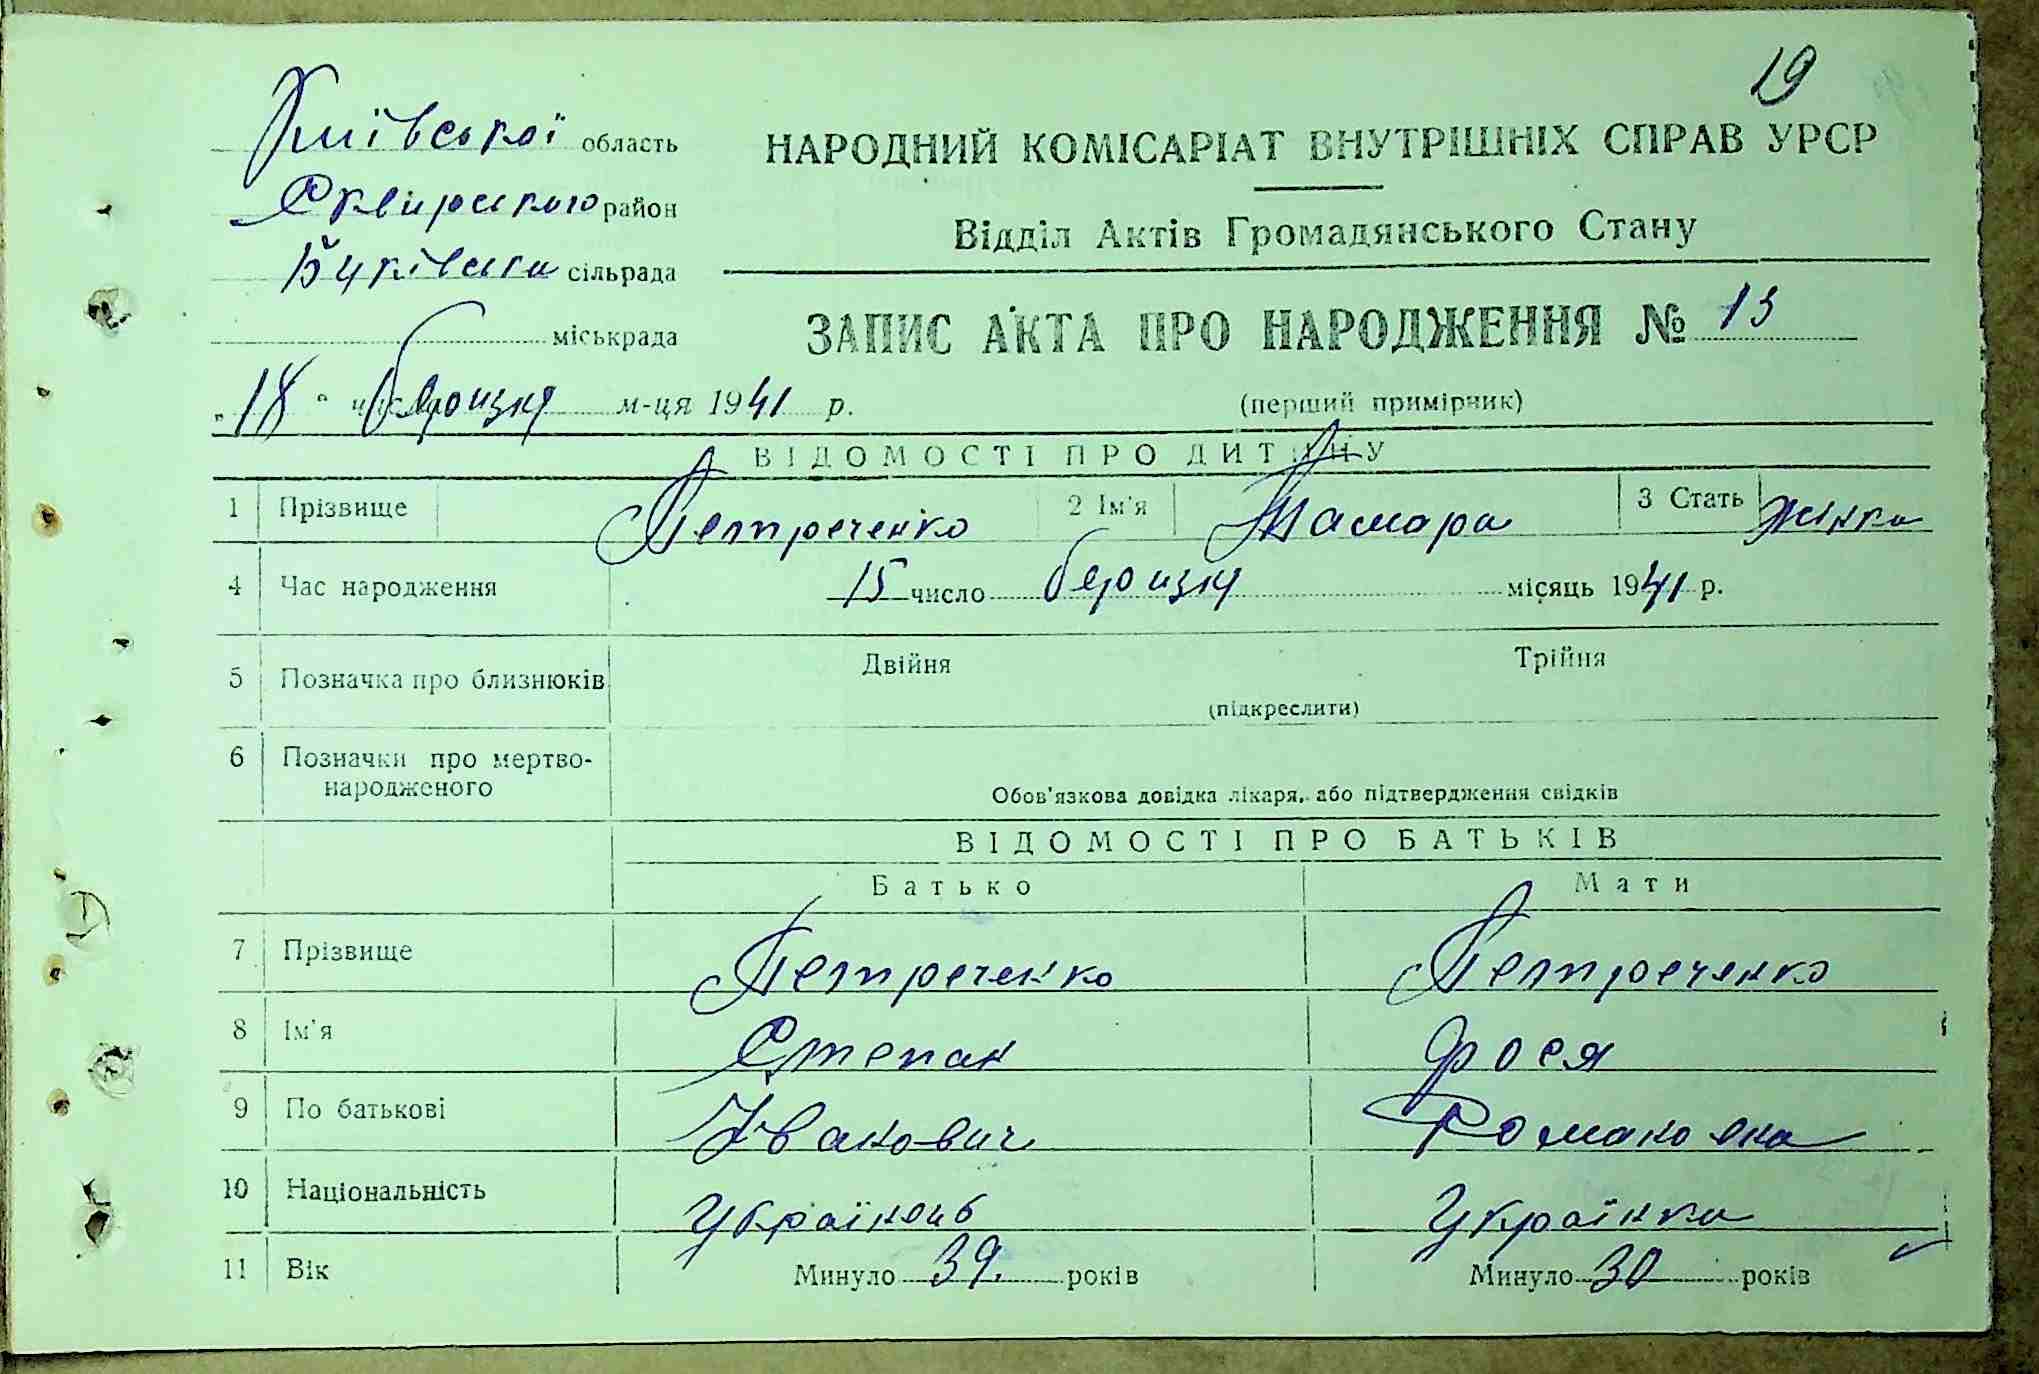 19
Київської область
Сквирського район
Буківська сільрада
міськрада
„18“ числа березня м-ця 1941 р.
НАРОДНИЙ КОМІСАРІАТ ВНУТРІШНІХ СПРАВ УРСР
Відділ Актів Громадянського Стану
ЗАПИС АКТА ПРО НАРОДЖЕННЯ № 13
(перший примірник)
ВІДОМОСТІ ПРО ДИТИНУ
1 Прізвище Петреченко 2 Ім'я Тамара 3 Стать жінка
4 Час народження 15 число березня місяць 1941 р.
5 Позначка про близнюків Двійня Трійня
(підкреслити)
6 Позначки про мертво-
народженого
Обов'язкова довідка лікаря, або підтвердження свідків
ВІДОМОСТІ ПРО БАТЬКІВ
Батько Мати
7 Прізвище Петреченко Петреченко
8 Ім'я Степан Фрося
9 По батькові Іванович Романовна
10 Національність Українець Українка
11 Вік Минуло 39 років Минуло 30 років